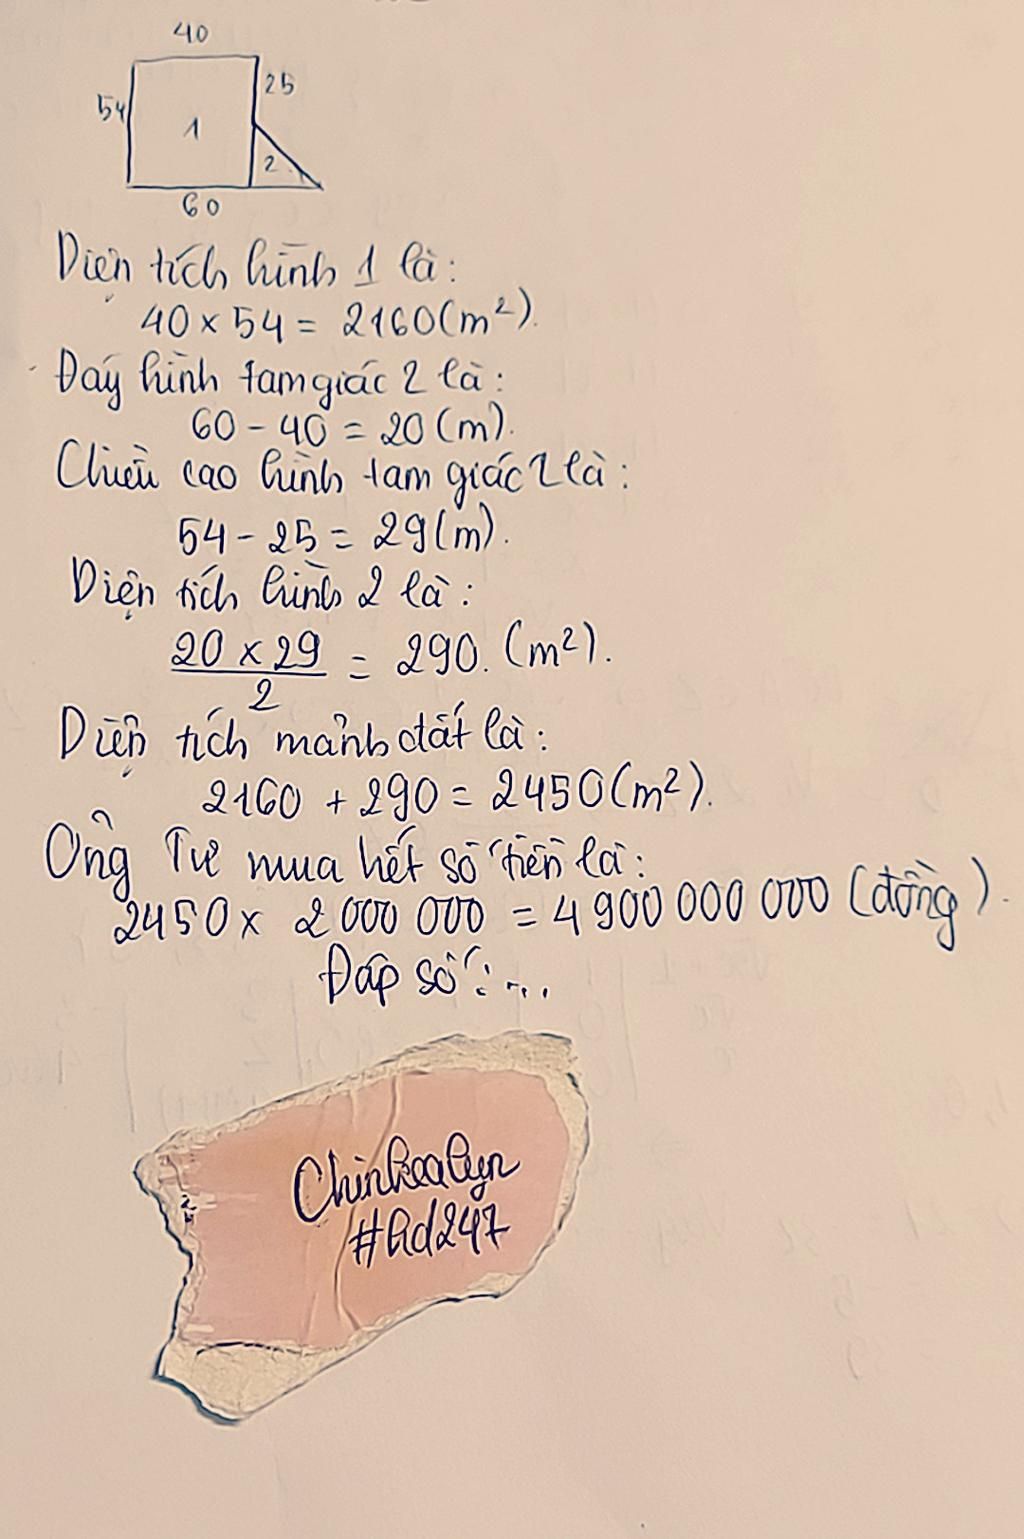 40
54
25
1
2
60
Diện tích hình 1 là:
40 × 54 = 2160(m²).
Đáy hình tam giác 2 là:
60 - 40 = 20 (m).
Chiều cao hình tam giác 2 là:
54 - 25 = 29(m).
Diện tích hình 2 là:
20 × 29
2
= 290. (m²).
Diện tích mảnh đất là:
2160 + 290 = 2450(m²).
Ông Tư mua hết số tiền là:
2450 × 2 000 000 = 4 900 000 000 (đồng).
Đáp số: ...
#hd247